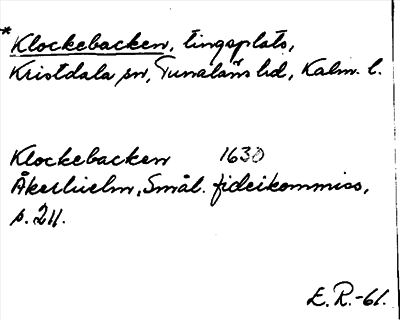 *Klockebacken, tingsplats,
Kristdala sn, Tunaläns hd, Kalm. l.
Klockebacken 1630
Åkerhielm, Smål. fideikommiss,
s. 211.
E. R.-61.